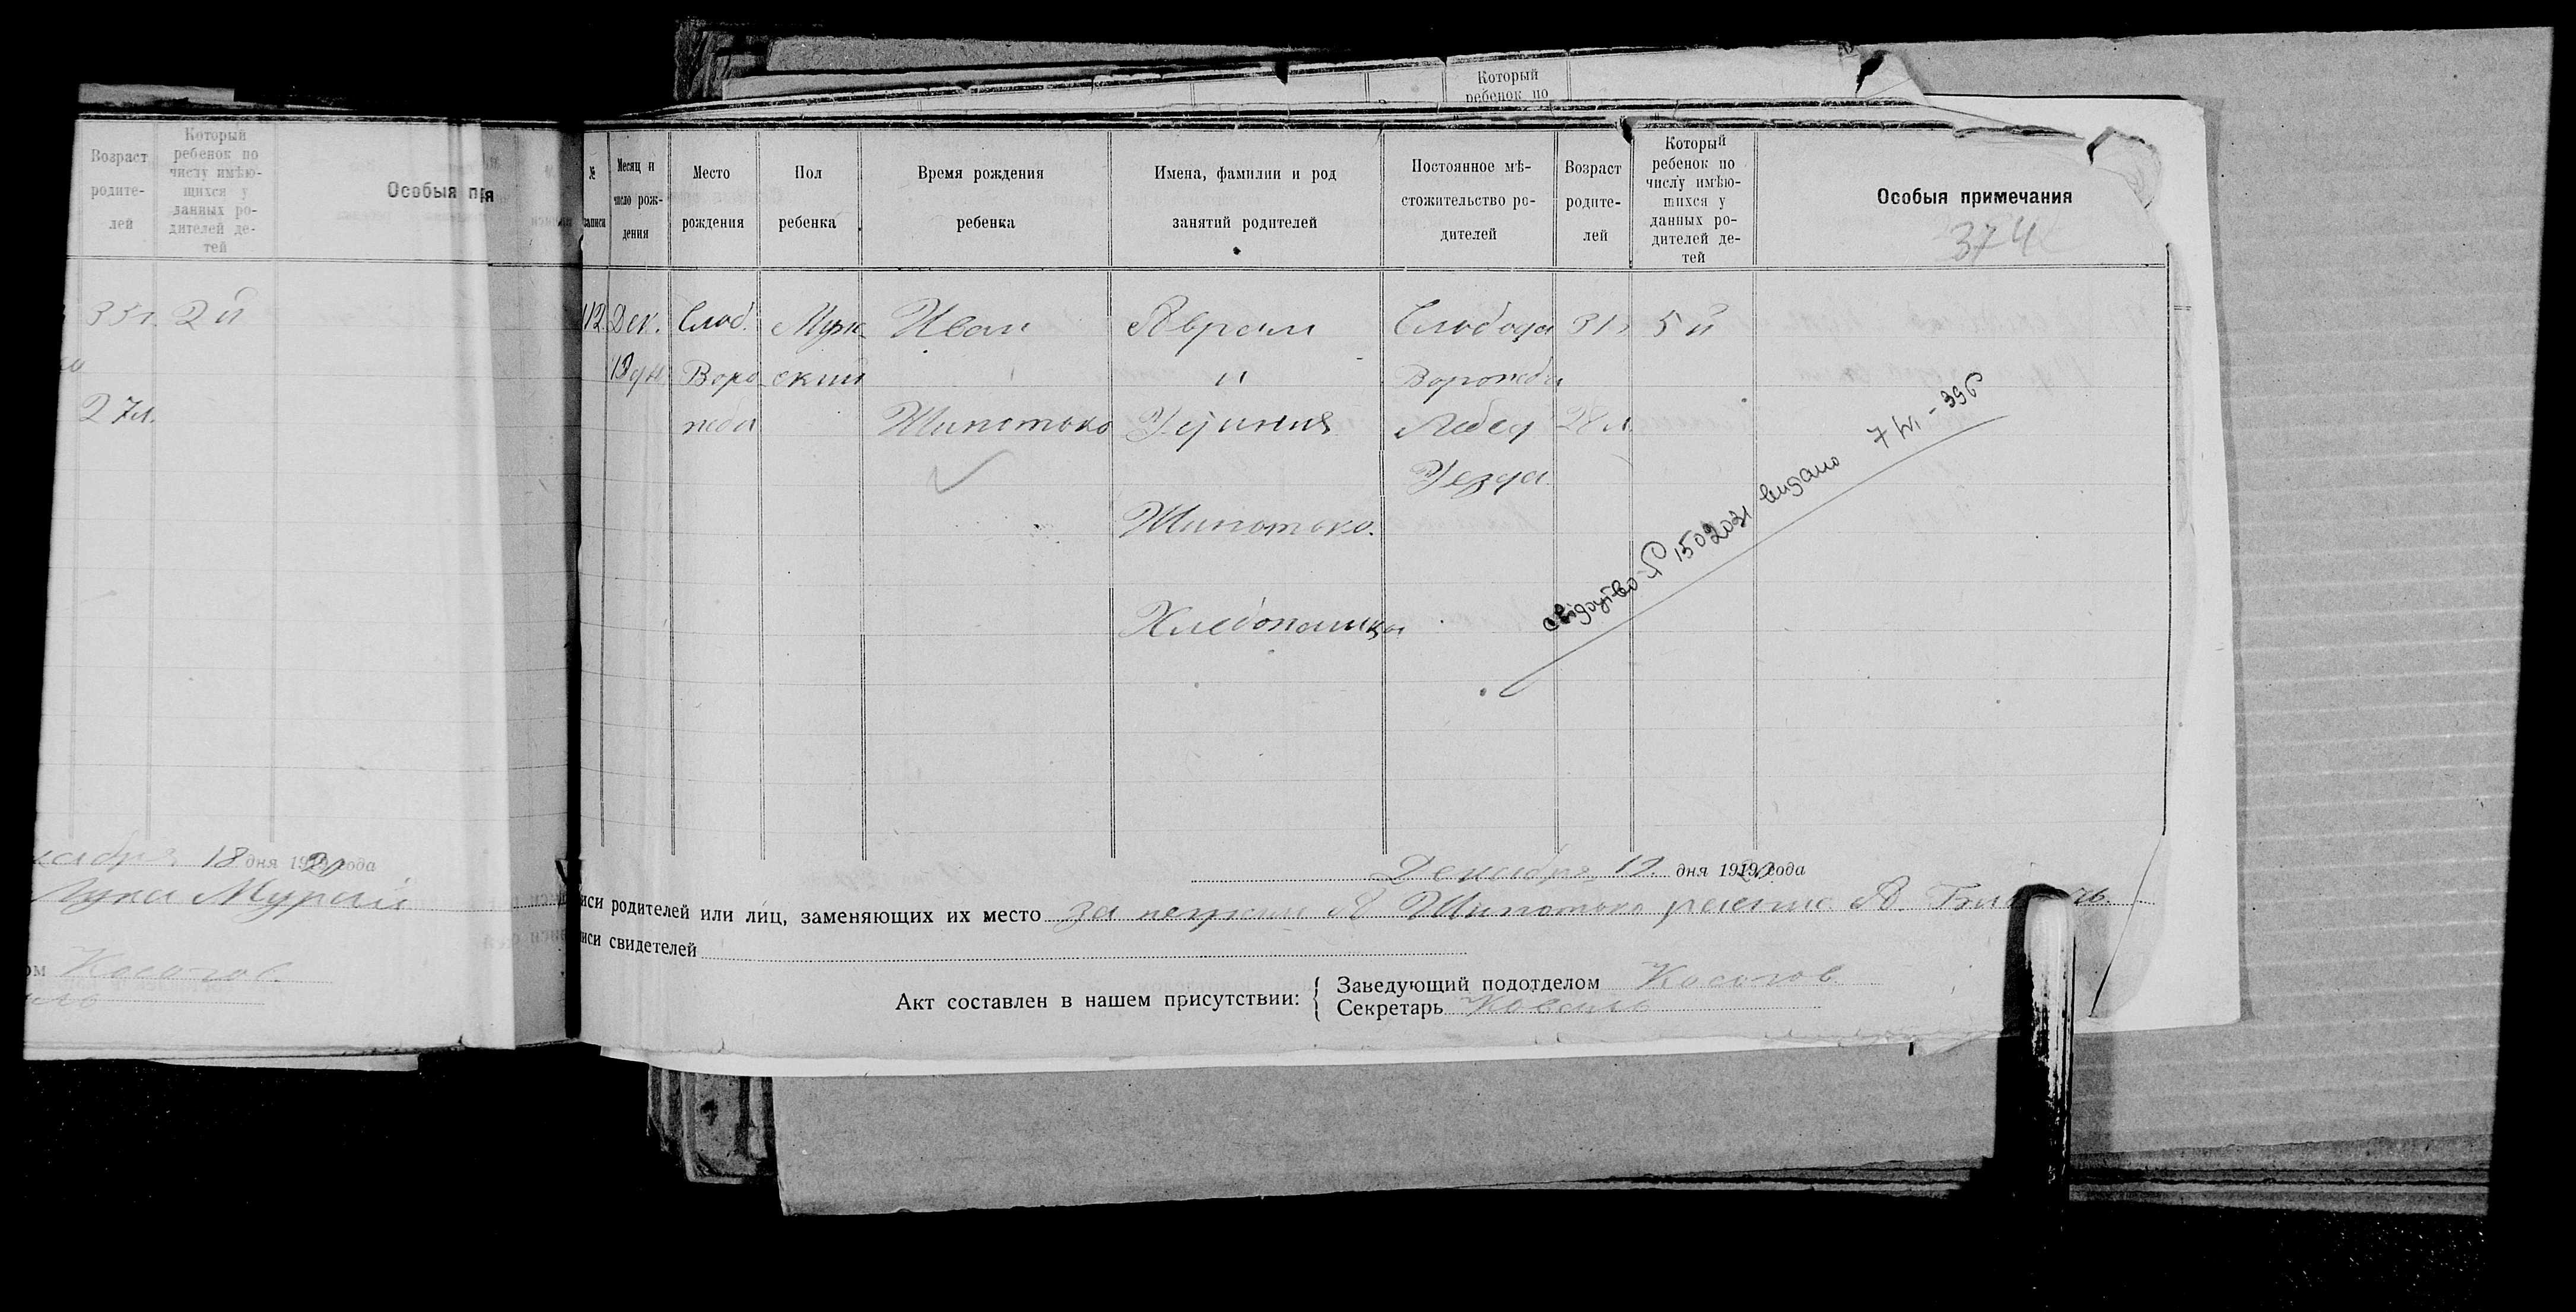 Который
ребенок по
Возраст
родите-
лей
Который
ребенок по
числу имѣю-
щихся у
данных ро-
дителей де-
тей
Особыя пр
33л. 2й
27л.
18 дня 1920 года
Лука Мурай
Косогов
№
записи
Месяц и
число рож-
дения
Место
рождения
Пол
ребенка
Время рождения
ребенка
Имена, фамилии и род
занятий родителей
Постоянное мѣ-
стожительство ро-
дителей
Возраст
родите-
лей
Который
ребенок по
числу имѣю-
щихся у
данных ро-
дителей де-
тей
Особыя примечания
374
112 Дек. Слоб. Муж Иван Аврам Слобода 31л 5й
Воро ский и Ворожба
жба Шипотько Лебед 28л
Уезда
Шипотько.
Хлебопашцы
свідоцтво 1502031 видано 7/VI-39р
Декабря 19 дня 1920 года
иси родителей или лиц, заменяющих их место за негр А Шипотько
иси свидетелей
Акт составлен в нашем присутствии:
Заведующий подотделом Косогов
Секретарь Коваль